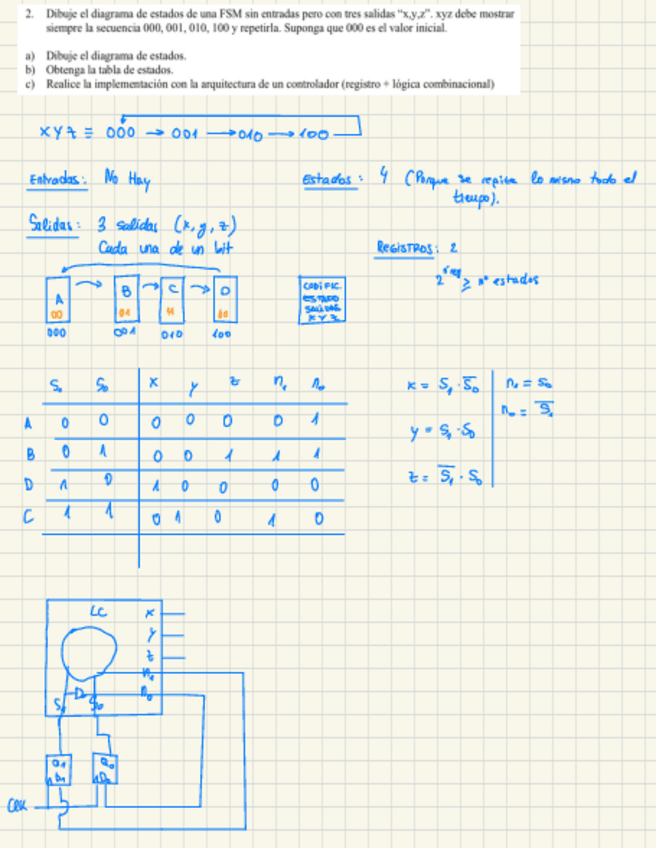 2. Dibuje el diagrama de estados de una FSM sin entradas pero con tres salidas "x,y,z". xyz debe mostrar
siempre la secuencia 000, 001, 010, 100 y repetirla. Suponga que 000 es el valor inicial.
a) Dibuje el diagrama de estados.
b) Obtenga la tabla de estados.
c) Realice la implementación con la arquitectura de un controlador (registro + lógica combinacional)
XYZ ≡ 000 → 001 → 010 → 100
Entradas: No Hay
Estados: 4 (Porque se repite lo mismo todo el
tiempo).
Salidas: 3 salidas (x, y, z)
Cada una de un bit
REGISTROS: 2
2^nreg ≥ nº estados
A → B → C → D
00 01 11 10
000 001 010 100
CODIFIC.
ESTADO
SALIDAS
X Y Z
S₁ S₀ X Y Z n₁ n₀
A 0 0 0 0 0 0 1
B 0 1 0 0 1 1 1
D 1 0 1 0 0 0 0
C 1 1 0 1 0 1 0
x = S₁ · S̅₀
y = S₁ · S₀
z = S̅₁ · S₀
n₁ = S₀
n₀ = S̅₁
LC
x
y
z
n₁
n₀
S₁ S₀
Q₁ Q₀
D₁ D₀
CLK